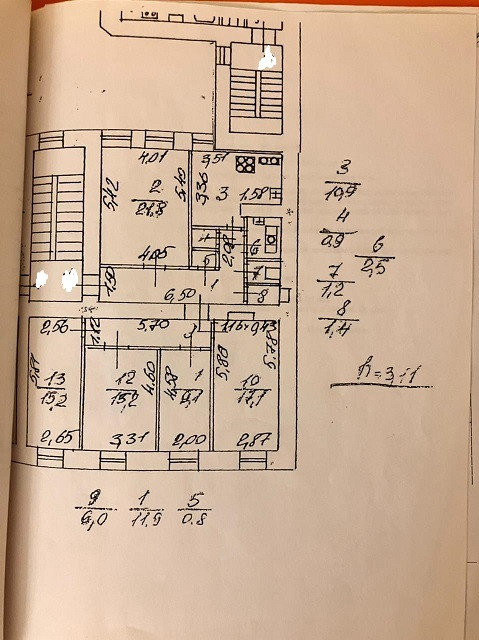 4.01
3,51
5,42
2
21.8
5,40
3,36
3
1.58
4
2,08
6
4.05
5
1,50
1
7
6,50
8
2,56
1,10
5,70
1.16
0,43
5,81
13
15,2
12
15,2
4.60
4.58
1
9,1
5,80
10
17,1
5,78
2,65
3,31
2.00
2,87
3
10,9
4
0,9
6
2,5
7
1,2
8
1,4
h=3,11
9
6,0
1
11.9
5
0.8